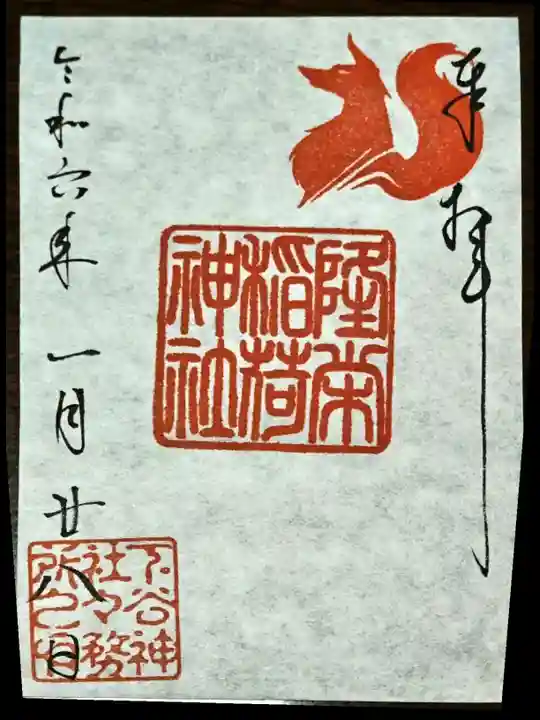 奉拝
隆栄
稲荷
神社
令和六年 一月廿八日
下谷神
社々務
所之印